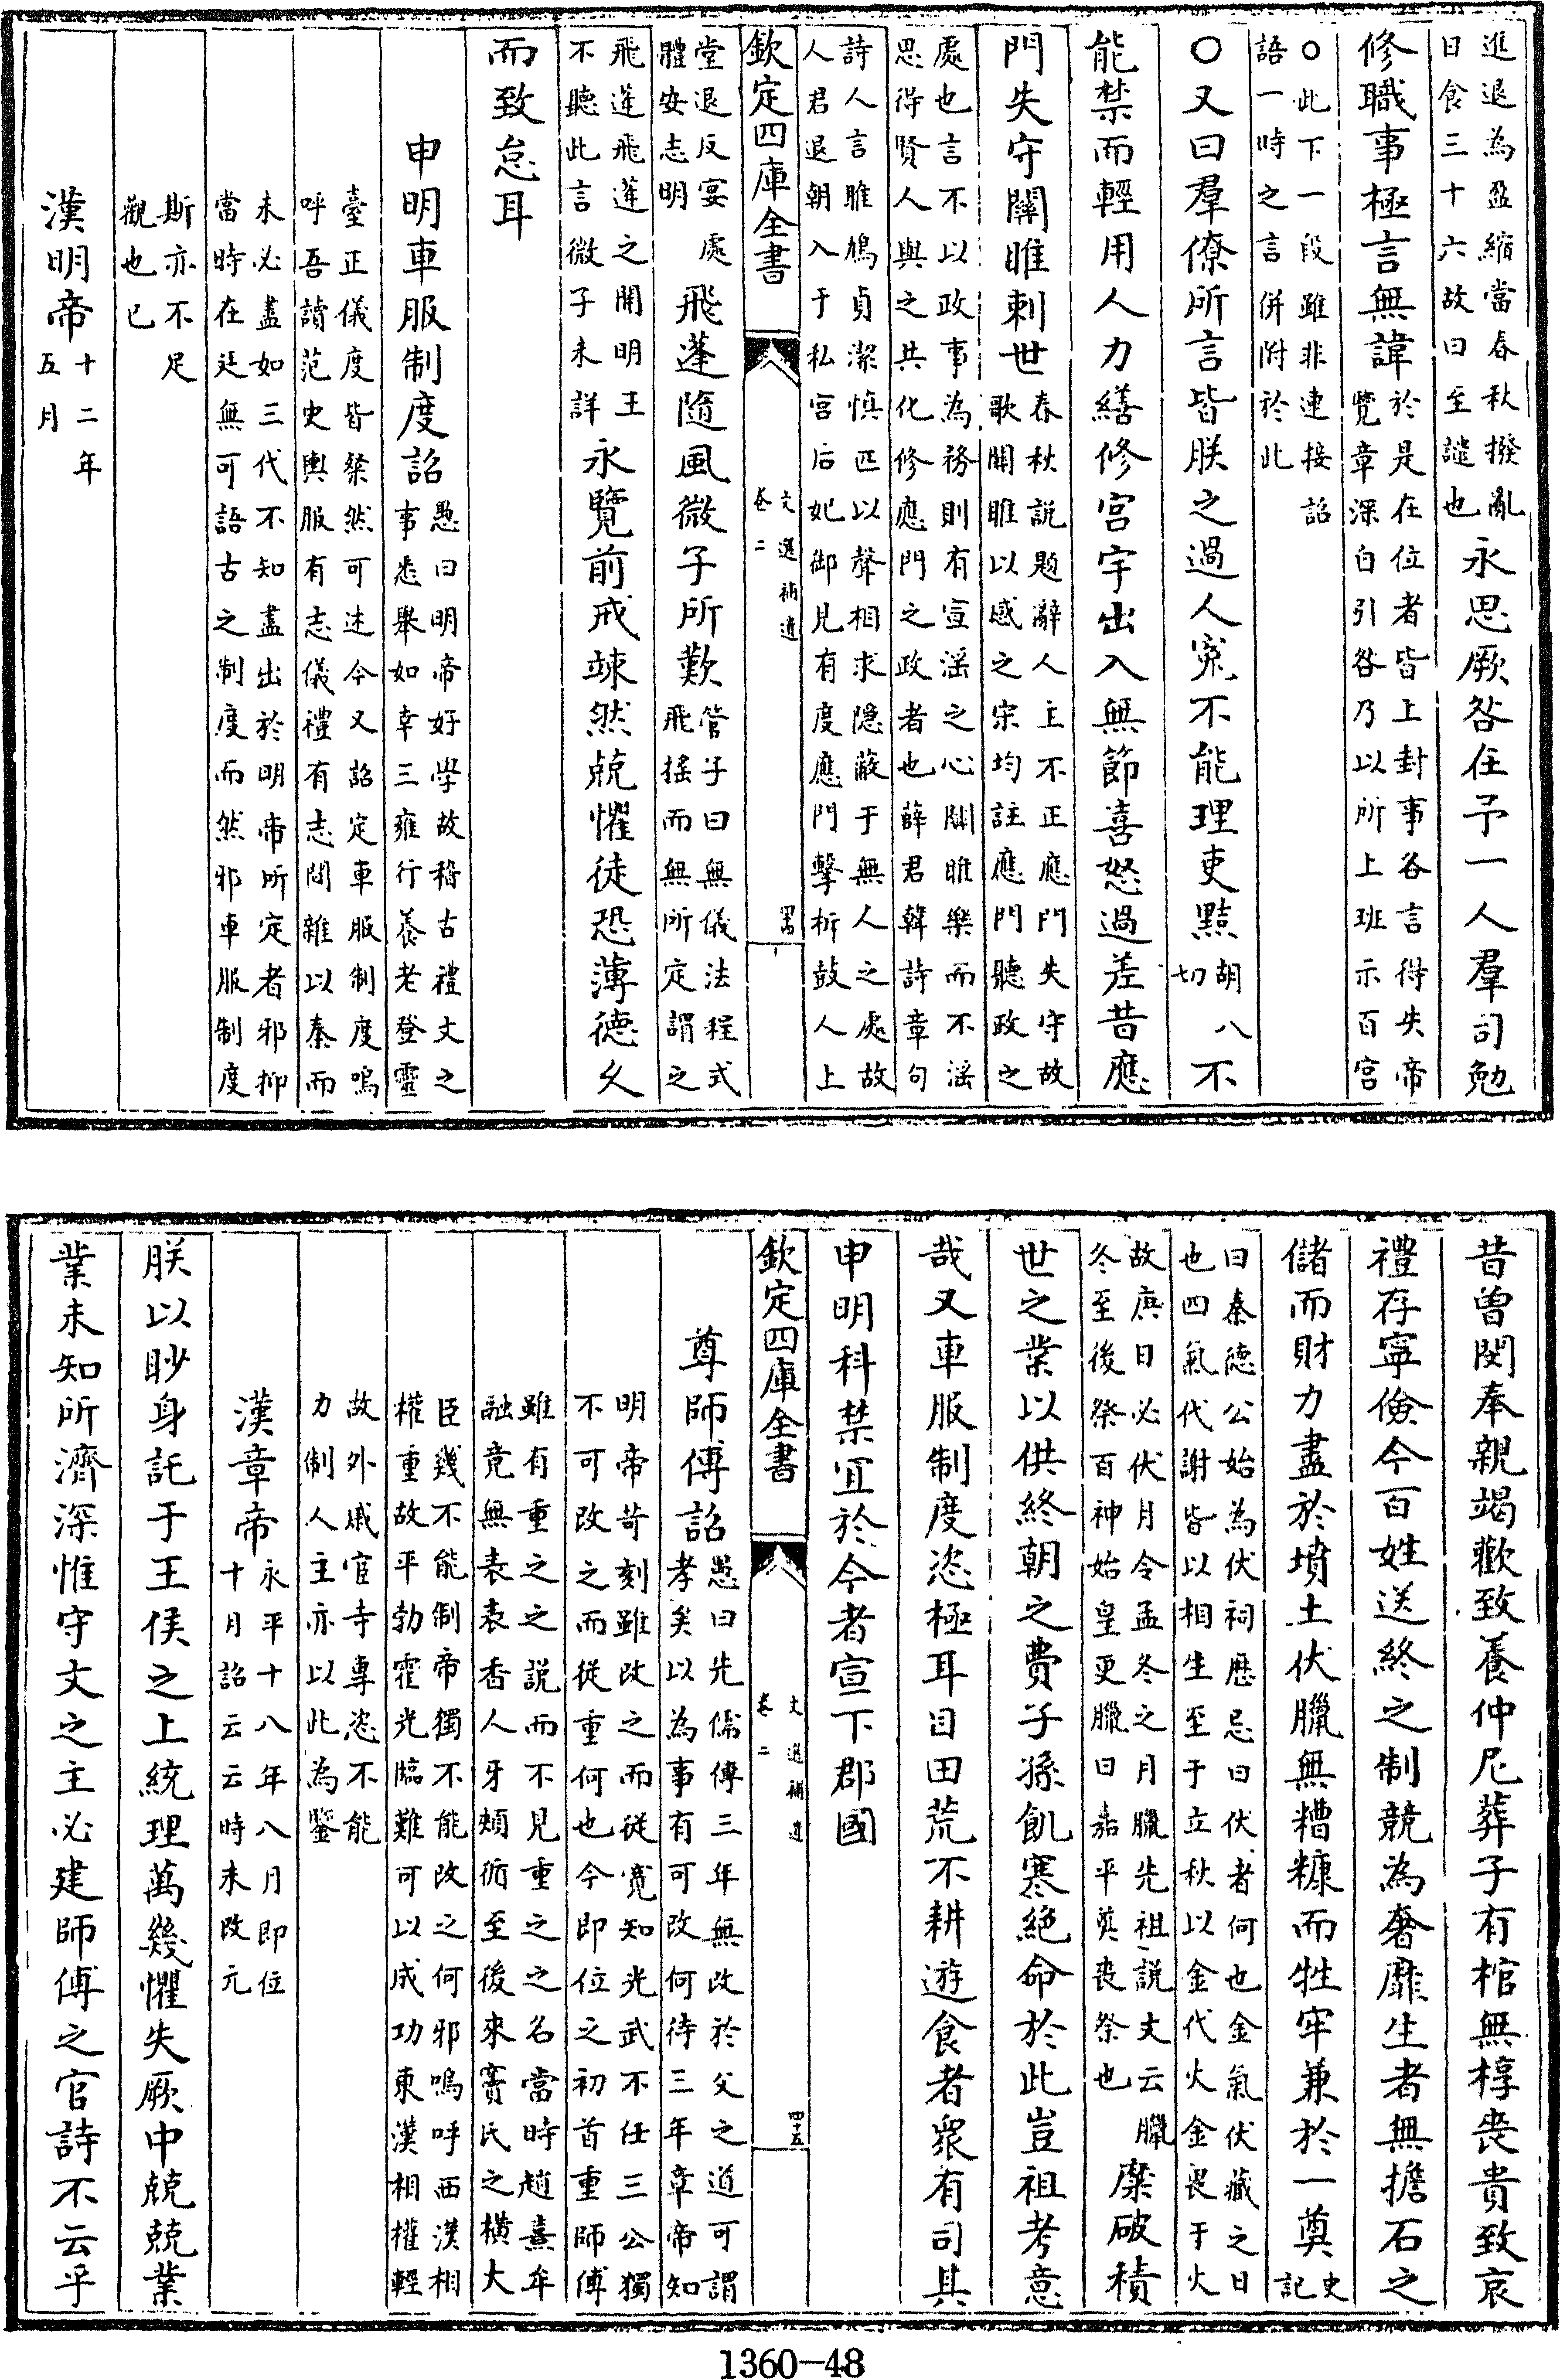 進退為盈縮當春秋撥亂
日食三十六故曰至譴也
永思厥咎在予一人羣司勉
修職事極言無諱
於是在位者皆上封事各言得失帝
覽章深自引咎乃以所上班示百官
○此下一段雖非連接詔
語一時之言併附於此
○又曰羣僚所言皆朕之過人寃不能理吏黠
胡八
切
不
能禁而輕用人力繕修宮宇出入無節喜怒過差昔應
門失守關雎刺世
春秋説題辭人主不正應門失守故
歌關雎以感之宋均註應門聽政之
處也言不以政事為務則有宣滛之心關雎樂而不滛
思得賢人與之共化修應門之政者也薛君韓詩章句
詩人言雎鳩貞潔慎匹以聲相求隠蔽于無人之處故
人君退朝入于私宮后妃御見有度應門擊柝鼓人上
欽定四庫全書
文選補遺
卷二
四十四
堂退反宴處
體安志明
飛蓬隨風微子所歎
管子曰無儀法程式
飛搖而無所定謂之
飛蓬飛蓬之閒明王
不聽此言微子未詳
永覽前戒竦然兢懼徒恐薄德久
而致怠耳
申明車服制度詔
愚曰明帝好學故稽古禮文之
事悉舉如幸三雍行養老登靈
臺正儀度皆粲然可述今又詔定車服制度嗚
呼吾讀范史輿服有志儀禮有志間雜以秦而
未必盡如三代不知盡出於明帝所定者邪抑
當時在廷無可語古之制度而然邪車服制度
斯亦不足
觀也已
漢明帝
十二年
五月
昔曾閔奉親竭歡致養仲尼葬子有棺無椁喪貴致哀
禮存寧儉今百姓送終之制競為奢靡生者無擔石之
儲而財力盡於墳土伏臘無糟糠而牲牢兼於一奠
史
記
曰秦德公始為伏祠歴忌曰伏者何也金氣伏藏之日
也四氣代謝皆以相生至于立秋以金代火金畏于火
故庚日必伏月令孟冬之月臘先祖説文云臘
冬至後祭百神始皇更臘曰嘉平奠喪祭也
糜破積
世之業以供終朝之費子孫飢寒絶命於此豈祖考意
哉又車服制度恣極耳目田荒不耕遊食者衆有司其
申明科禁宜於今者宣下郡國
欽定四庫全書
文選補遺
卷二
四十五
尊師傅詔
愚曰先儒傅三年無改於父之道可謂
孝矣以為事有可改何待三年章帝知
明帝苛刻雖改之而從寛知光武不任三公獨
不可改之而從重何也今即位之初首重師傅
雖有重之之説而不見重之之名當時趙熹牟
融竟無表表香人牙頰循至後來竇氏之橫大
臣幾不能制帝獨不能改之何邪嗚呼西漢相
權重故平勃霍光臨難可以成功東漢相權輕
故外戚宦寺專恣不能
力制人主亦以此為鑒
漢章帝
永平十八年八月即位
十月詔云云時未改元
朕以眇身託于王侯之上統理萬幾懼失厥中兢兢業
業未知所濟深惟守文之主必建師傅之官詩不云乎
1360-48